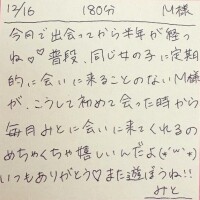 12/16 180分 M様
今日で出会ってから半年が経つ
ね♡♡普段、同じ女の子に定期
的に会いに来ることのないM様
が、こうして初めて会った時から
毎月みとに会いに来てくれるの
めちゃくちゃ嬉しいんだよ(*'ω'*)
いつもありがとう♡また遊ぼうね!!
みと